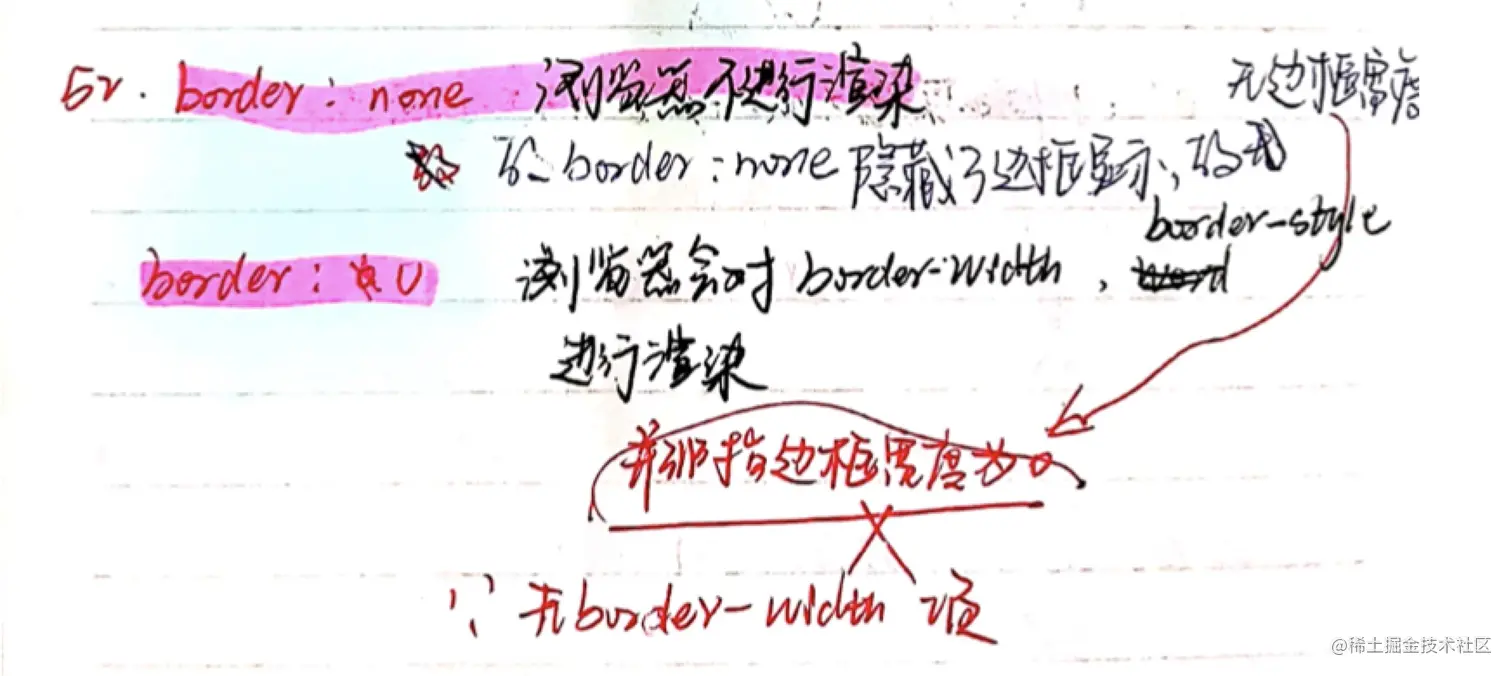 52. border : none 浏览器不进行渲染
无边框宽度
故 border : none 隐藏了边框显示, 故无
border-style
border : 0 浏览器会对 border-width ,
进行渲染
并非指边框宽度为0
∵ 无border-width 项
@稀土掘金技术社区